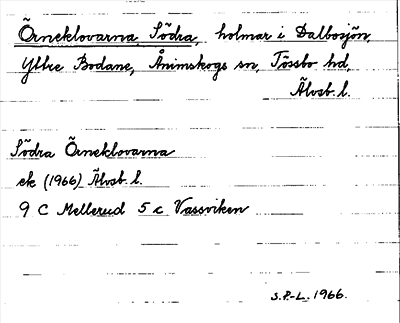 Örneklovarna, Södra, holmar i Dalbosjön,
Yttre Bodane, Ånimskogs sn, Tössbo hd,
Älvsb. l.
Södra Örneklovarna
ek (1966) Älvsb. l.
9 C Mellerud 5 c Vassviken
S.P.-L. 1966.